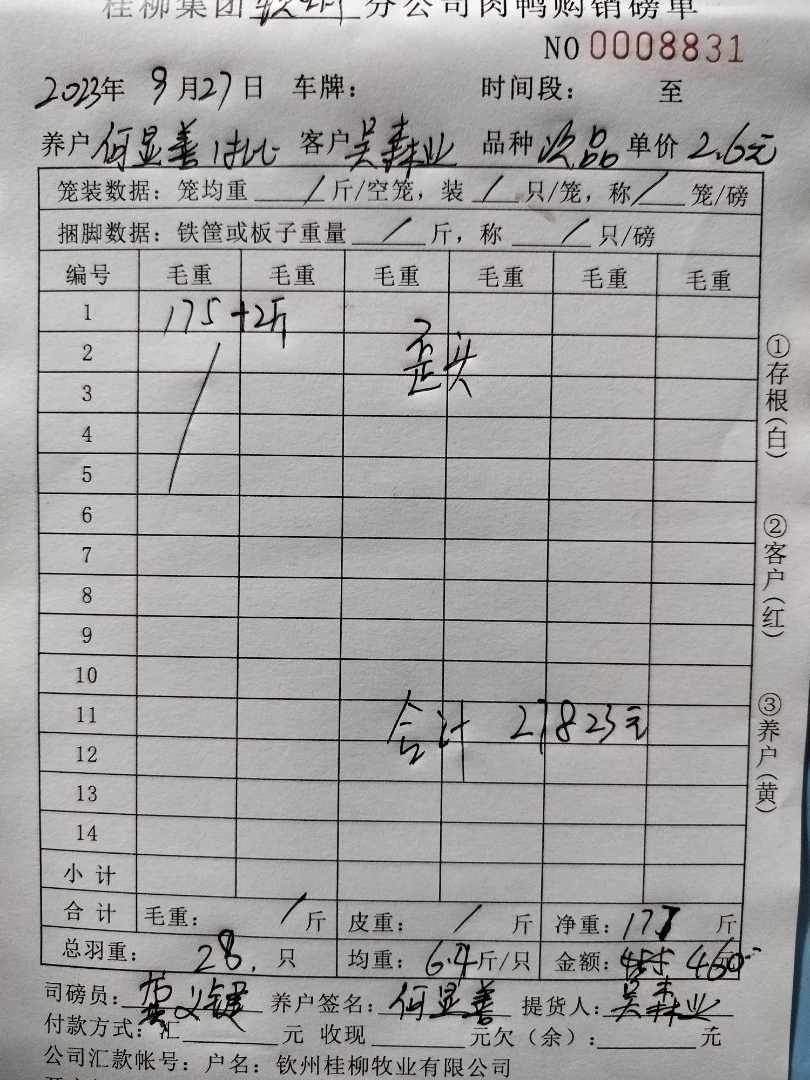 桂柳集团钦州分公司肉鸭购销磅单
NO 0008831
2023年 9月27日 车牌： 时间段： 至
养户 何显善 客户 吴森业 品种 次品 单价 2.6元
笼装数据：笼均重 / 斤/空笼，装 / 只/笼，称 / 笼/磅
捆脚数据：铁筐或板子重量 / 斤，称 / 只/磅
编号 毛重 毛重 毛重 毛重 毛重 毛重
1 175+2斤
2 歪头
3
4
5
6
7
8
9
10
11 合计 27823元
12
13
14
小计
合计 毛重： / 斤 皮重： / 斤 净重：177 斤
总羽重： 28. 只 均重：6.4斤/只 金额： 460
司磅员： 义键 养户签名：何显善 提货人：吴森业
付款方式：汇 元 收现 元欠（余）： 元
公司汇款帐号：户名：钦州桂柳牧业有限公司
①存根（白） ②客户（红） ③养户（黄）